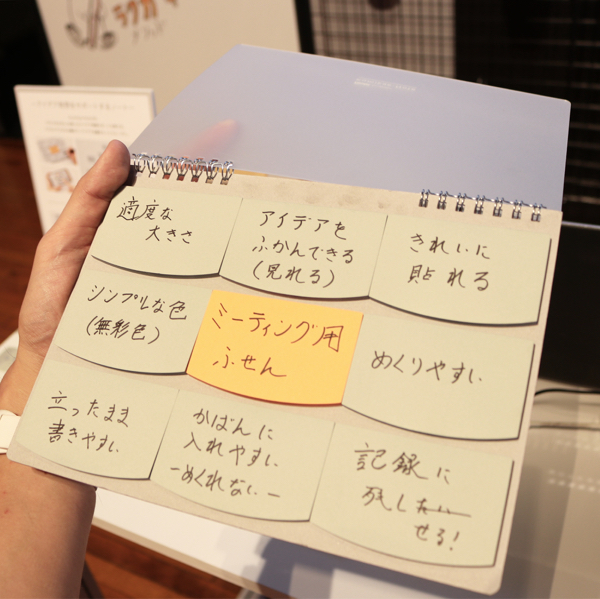 ラクガキ
適度な
大きさ
アイデアを
ふかんできる
(見れる)
きれいに
貼れる
シンプルな色
(無彩色)
ミーティング用
ふせん
めくりやすい
立ったまま
書きやすい
かばんに
入れやすい
ーめくれないー
記録に
残したい
せる!